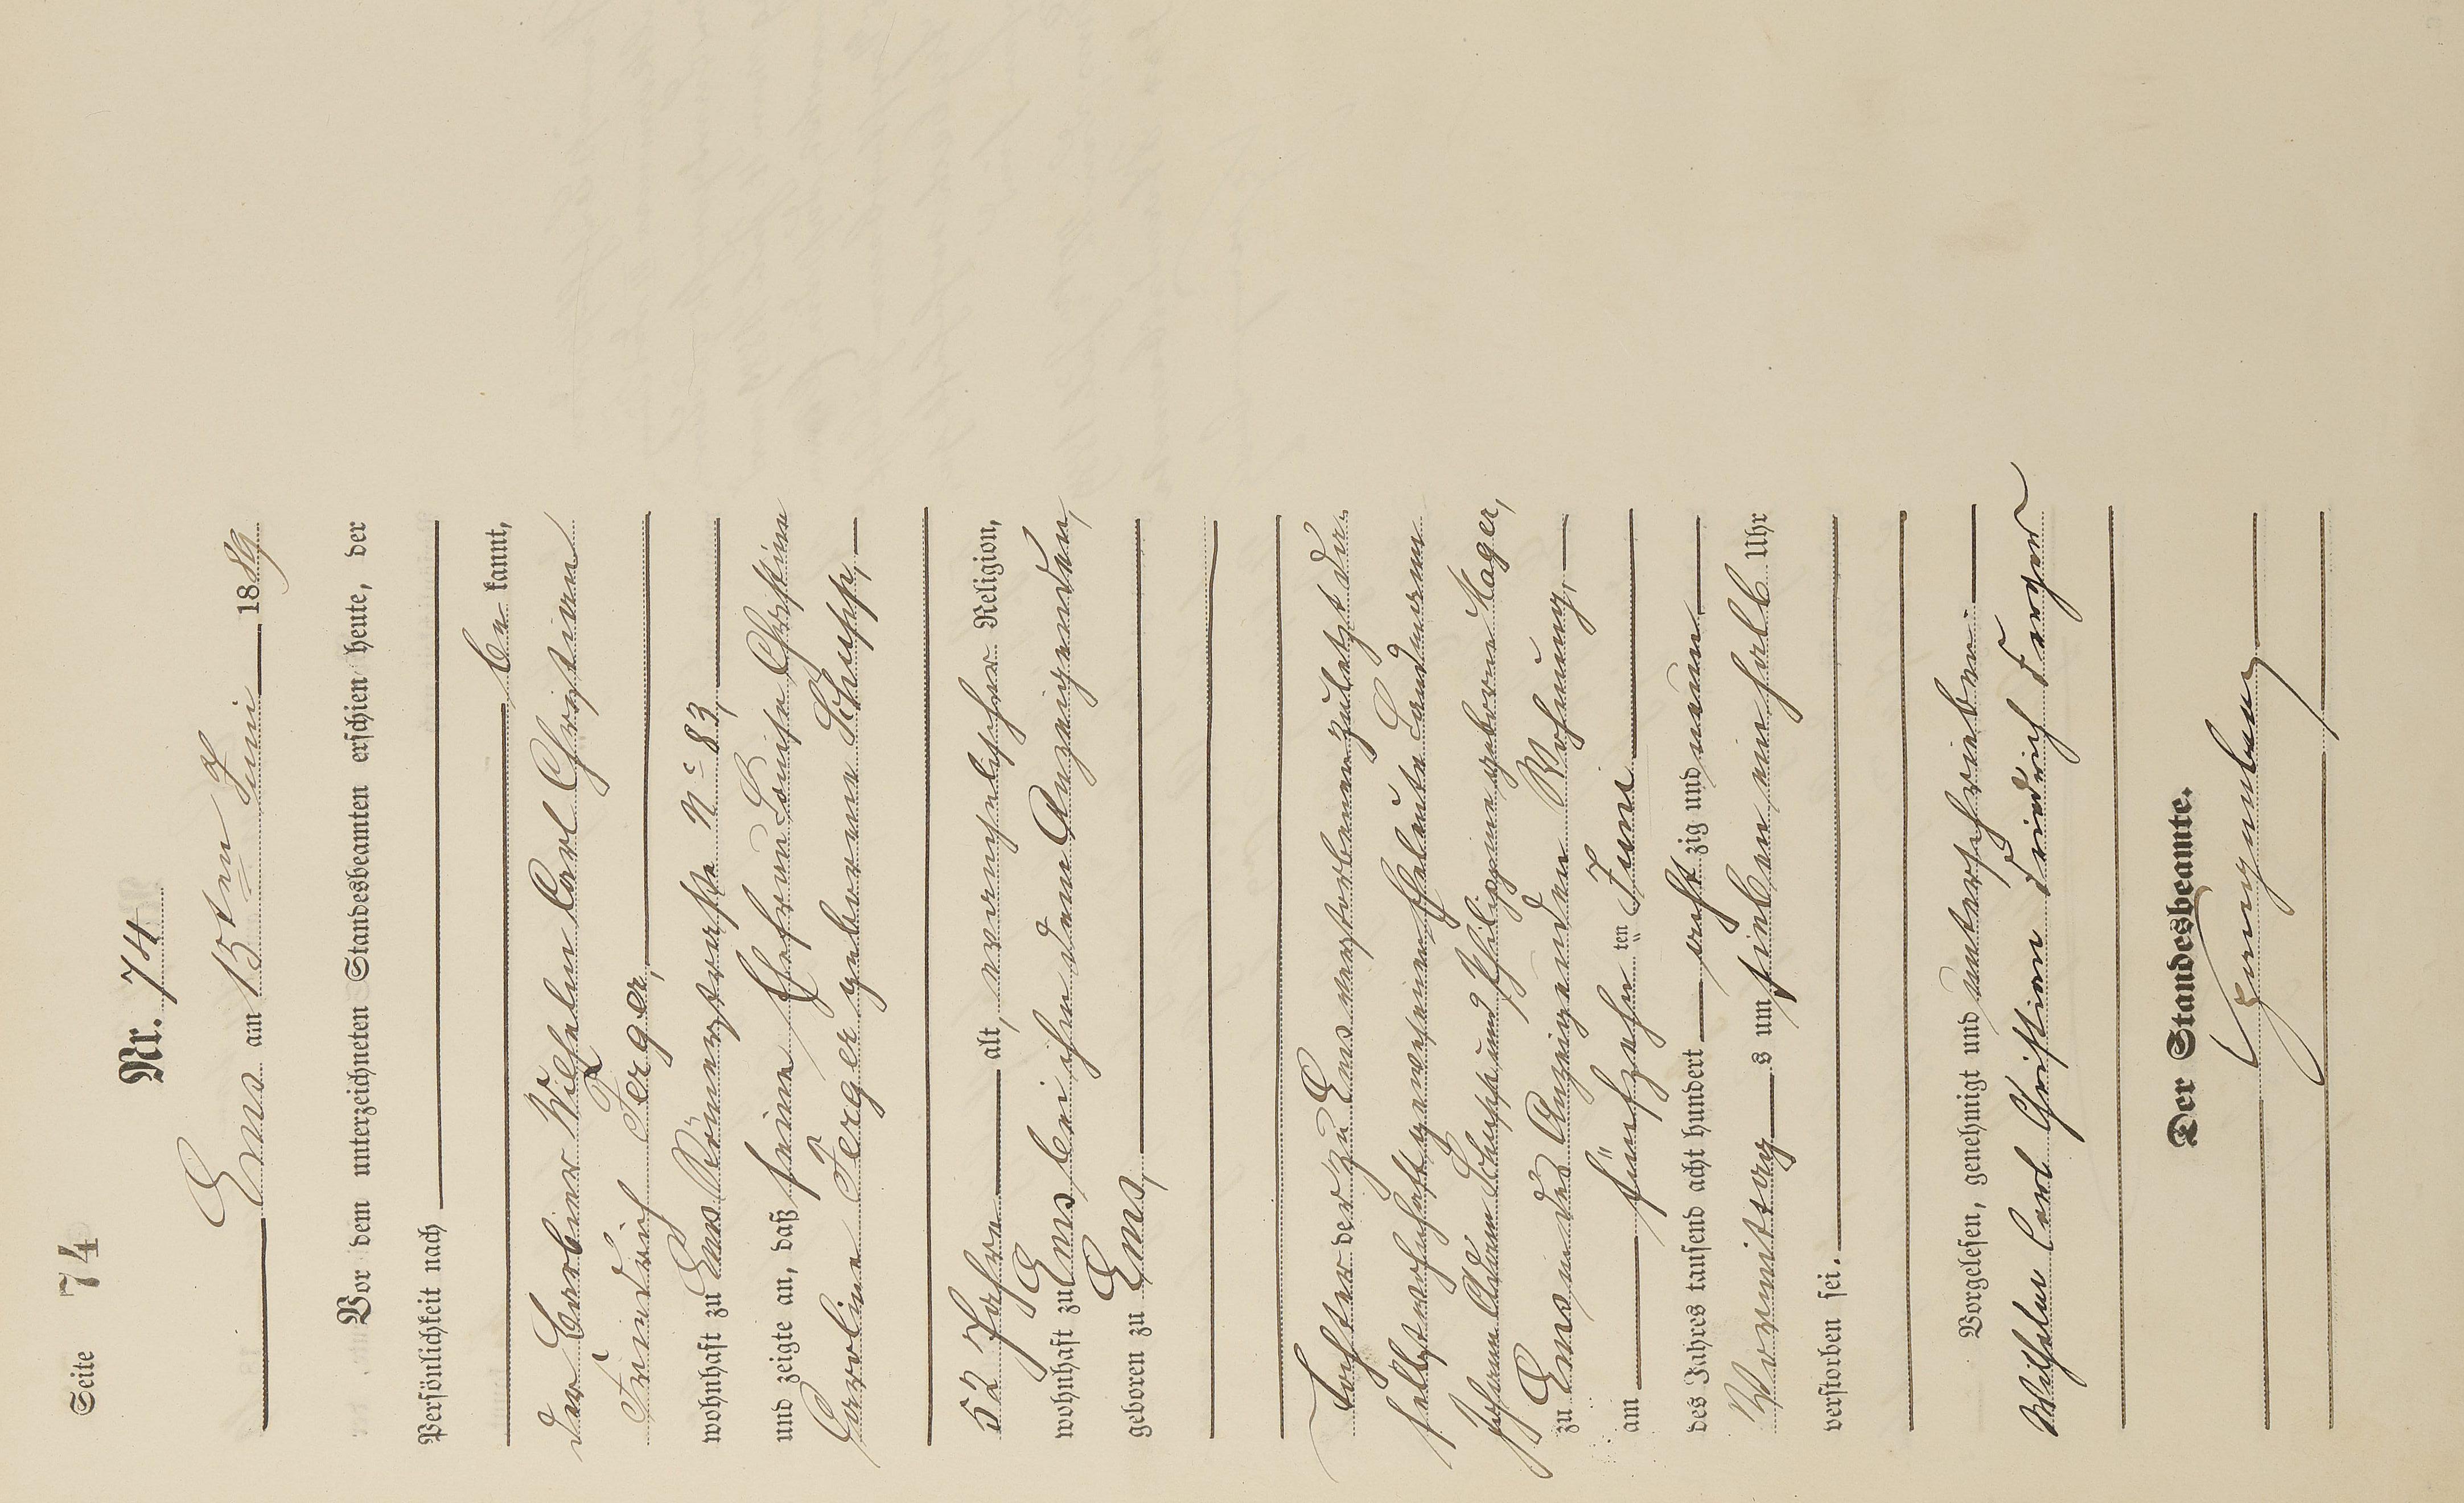 Seite 74
Nr. 74
Ems am 15ten Juni 1889
Vor dem unterzeichneten Standesbeamten erschien heute, der
Persönlichkeit nach
be kannt,
der Barbier Wilhelm Carl Christian
Friedrich Ferger,
wohnhaft zu Ems Römerstraße No 83,
und zeigte an, daß seine Ehefrau Louise Christine
Caroline Ferger geborene Schupp,
52 Jahre alt, evangelischer Religion,
wohnhaft zu Ems bei ihm dem Anzeigenden,
geboren zu Ems,
Tochter der zu Ems verstorbenen zuletzt da-
selbst wohnhaft gewesenen Eheleute Landmann
Johann Adam Schupp und Philippine geborene Mager,
zu Ems in des Anzeigenden Wohnung,
am fünfzehnten Juni
des Jahres tausend acht hundert acht zig und neun
Vormittags um sieben ein halb Uhr
verstorben sei.
Vorgelesen, genehmigt und unterschrieben
Wilhelm Carl Christian Friedrich Ferger
Der Standesbeamte.